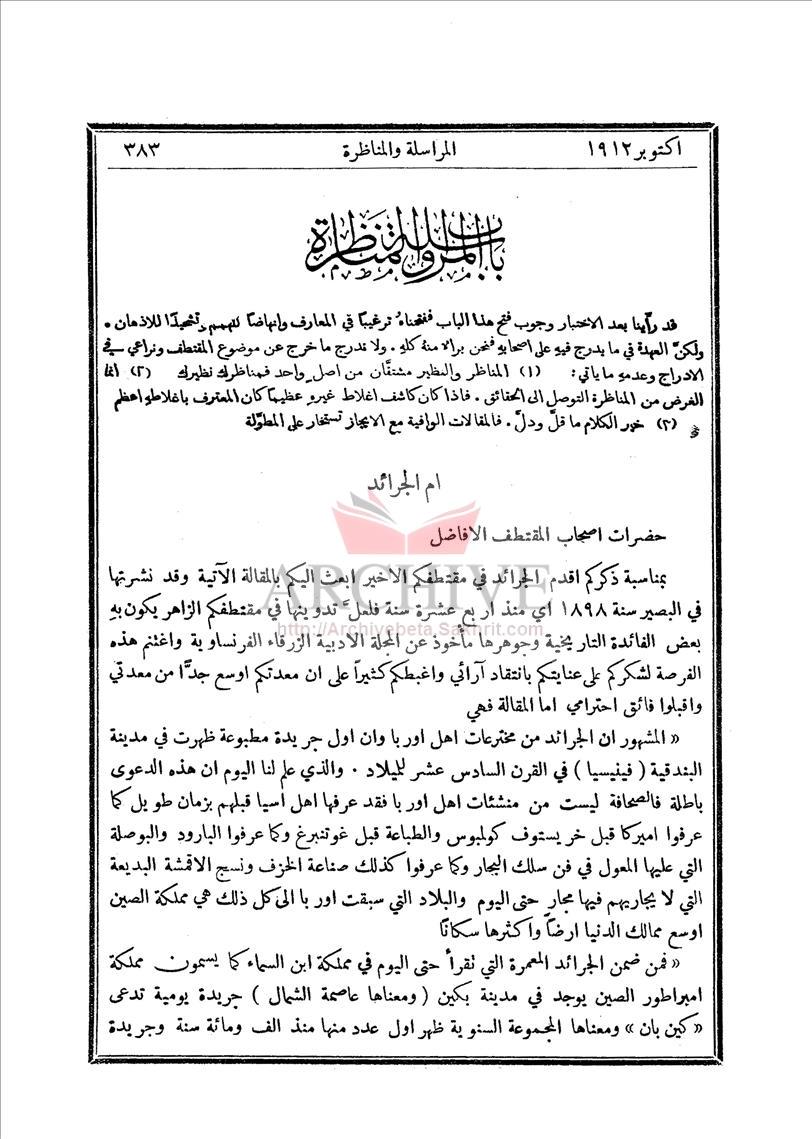 اكتوبر ١٩١٢ المراسلة والمناظرة ٣٨٣
باب المراسلة والمناظرة
قد رأينا بعد الاختبار وجوب فتح هذا الباب ففتحناهُ ترغيبًا في المعارف وإنهاضًا للهمم وتشحيذًا للاذهان .
ولكنَّ العهدة في ما يدرج فيهِ على اصحابهِ فنحن براء منهُ كلهِ . ولا ندرج ما خرج عن موضوع المقتطف ونراعي في
الادراج وعدمهِ ما ياتي : (١) المناظر والنظير مشتقَّان من اصلٍ واحد فمناظرك نظيرك (٢) انما
الغرض من المناظرة التوصل الى الحقائق . فاذا كان كاشف اغلاط غيرهِ عظيمًا كان المعترف باغلاطهِ اعظم
(٣) خير الكلام ما قلَّ ودلَّ . فالمقالات الوافية مع الايجاز تستخار على المطوَّلة
ام الجرائد
حضرات اصحاب المقتطف الافاضل
ARCHIVE
http://Archivebeta.Sakhrit.com
بمناسبة ذكركم اقدم الجرائد في مقتطفكم الاخير ابعث اليكم بالمقالة الآتية وقد نشرتها
في البصير سنة ١٨٩٨ اي منذ اربع عشرة سنة فلعلَّ تدوينها في مقتطفكم الزاهر يكون بهِ
بعض الفائدة التاريخية وجوهرها مأخوذ عن المجلة الادبية الزرقاء الفرنساوية واغتنم هذه
الفرصة لشكركم على عنايتكم بانتقاد آرائي واغبطكم كثيراً على ان معدتكم اوسع جدًّا من معدتي
واقبلوا فائق احترامي اما المقالة فهي
« المشهور ان الجرائد من مخترعات اهل اوربا وان اول جريدة مطبوعة ظهرت في مدينة
البندقية ( فينيسيا ) في القرن السادس عشر للميلاد . والذي علم لنا اليوم ان هذه الدعوى
باطلة فالصحافة ليست من منشئات اهل اوربا فقد عرفها اهل اسيا قبلهم بزمان طويل كما
عرفوا اميركا قبل خريستوف كولمبوس والطباعة قبل غوتنبرغ وكما عرفوا البارود والبوصلة
التي عليها المعول في فن سلك البحار وكما عرفوا كذلك صناعة الخزف ونسج الاقمشة البديعة
التي لا يجاريهم فيها مجار حتى اليوم والبلاد التي سبقت اوربا الى كل ذلك هي مملكة الصين
اوسع ممالك الدنيا ارضاً واكثرها سكانًا
« فمن ضمن الجرائد المعمرة التي نقرأ حتى اليوم في مملكة ابن السماء كما يسمون مملكة
امبراطور الصين يوجد في مدينة بكين ( ومعناها عاصمة الشمال ) جريدة يومية تدعى
« كين بان » ومعناها المجموعة السنوية ظهر اول عدد منها منذ الف ومائة سنة وجريدة